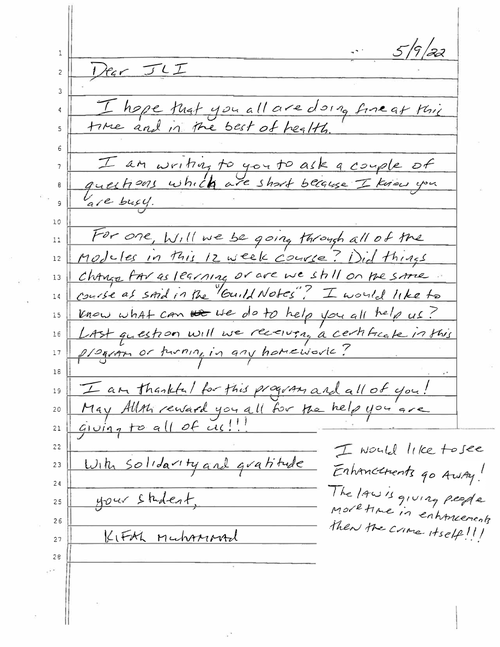 5/9/22
1
2 Dear JLI
3
4 I hope that you all are doing fine at this
5 time and in the best of health.
6
7 I am writing to you to ask a couple of
8 questions which are short because I know you
9 are busy.
10
11 For one, Will we be going through all of the
12 modules in this 12 week course? Did things
13 change far as learning or are we still on the same
14 course as said in the "Guild Notes"? I would like to
15 know what can we do to help you all help us?
16 Last question will we receiving a certificate in this
17 program or turning in any homework?
18
19 I am thankful for this program and all of you!
20 May Allah reward you all for the help you are
21 giving to all of us!!!
22
23 With solidarity and gratitude
24
25 your student,
26
27 Kifah Muhammad
28
I would like to see
Enhancements go away!
The law is giving people
more time in enhancements
then the crime itself!!!